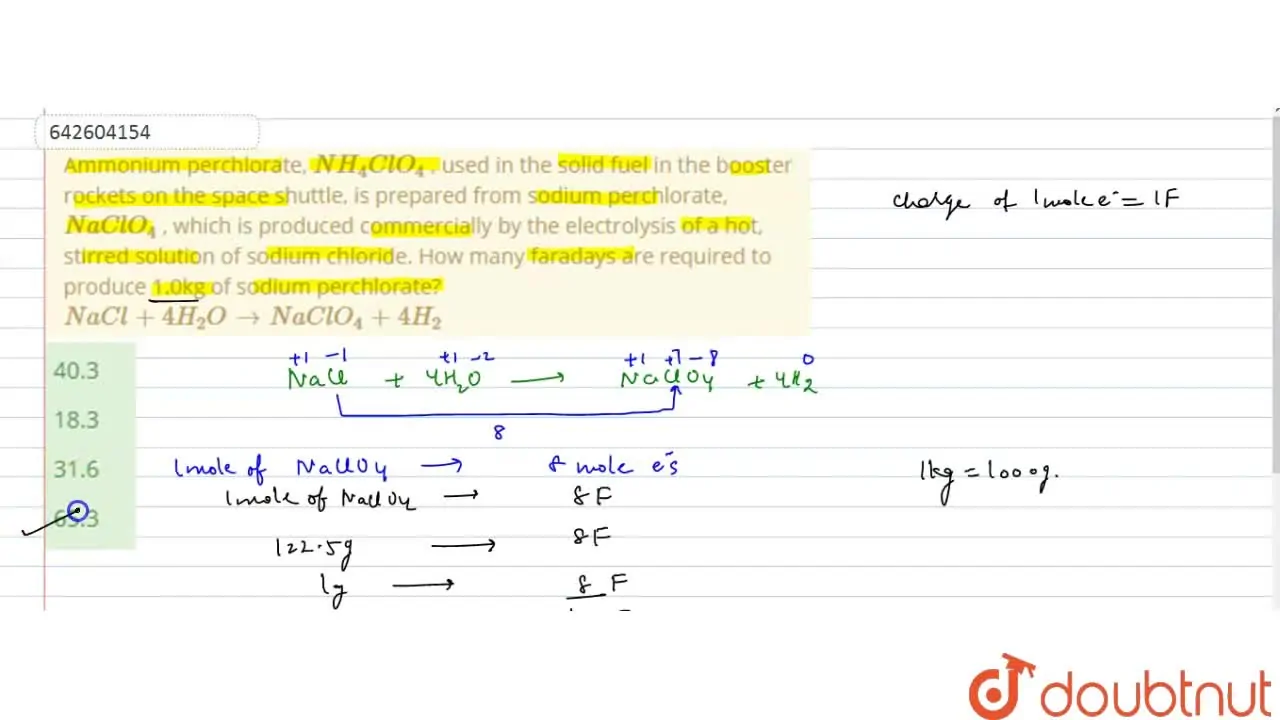 642604154
Ammonium perchlorate, NH₄ClO₄, used in the solid fuel in the booster
rockets on the space shuttle, is prepared from sodium perchlorate,
NaClO₄ , which is produced commercially by the electrolysis of a hot,
stirred solution of sodium chloride. How many faradays are required to
produce 1.0kg of sodium perchlorate?
NaCl + 4H₂O → NaClO₄ + 4H₂
charge of 1 mole e⁻ = 1F
40.3
18.3
31.6
+1 -1 +1 -2 +1 +7 -8 0
NaCl + 4H₂O → NaClO₄ + 4H₂
8
1 mole of NaClO₄ → 8 mole e⁻s
1 mole of NaClO₄ → 8F
1kg = 1000g.
122.5g → 8F
1g → 8 F
doubtnut